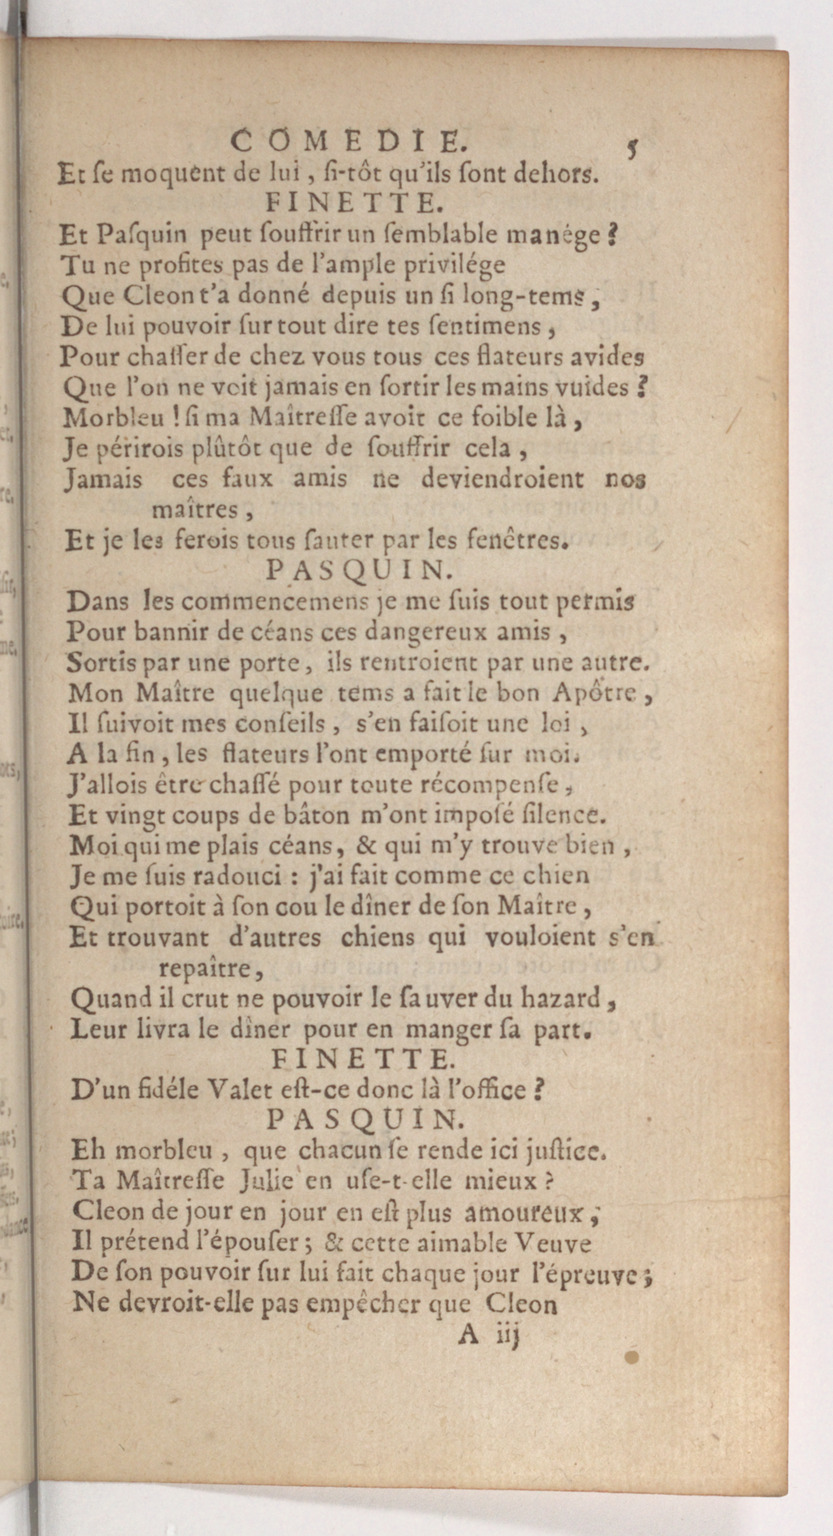 COMEDIE. 5
Et ſe moquent de lui, ſi-tôt qu'ils ſont dehors.
FINETTE.
Et Paſquin peut ſouffrir un ſemblable manége?
Tu ne profites pas de l'ample privilége
Que Cleon t'a donné depuis un ſi long-tems,
De lui pouvoir ſur tout dire tes ſentimens,
Pour chaſſer de chez vous tous ces flateurs avides
Que l'on ne voit jamais en ſortir les mains vuides?
Morbleu! ſi ma Maîtreſſe avoit ce foible là,
Je périrois plûtôt que de ſouffrir cela,
Jamais ces faux amis ne deviendroient nos
maîtres,
Et je les ferois tous ſauter par les fenêtres.
PASQUIN.
Dans les commencemens je me ſuis tout permis
Pour bannir de céans ces dangereux amis,
Sortis par une porte, ils rentroient par une autre.
Mon Maître quelque tems a fait le bon Apôtre,
Il ſuivoit mes conſeils, s'en faiſoit une loi,
A la fin, les flateurs l'ont emporté ſur moi.
J'allois être chaſſé pour toute récompenſe,
Et vingt coups de bâton m'ont impoſé ſilence.
Moi qui me plais céans, & qui m'y trouve bien,
Je me ſuis radouci: j'ai fait comme ce chien
Qui portoit à ſon cou le dîner de ſon Maître,
Et trouvant d'autres chiens qui vouloient s'en
repaître,
Quand il crut ne pouvoir le ſauver du hazard,
Leur livra le dîner pour en manger ſa part.
FINETTE.
D'un fidéle Valet eſt-ce donc là l'office?
PASQUIN.
Eh morbleu, que chacun ſe rende ici juſtice.
Ta Maîtreſſe Julie en uſe-t-elle mieux?
Cleon de jour en jour en eſt plus amoureux;
Il prétend l'épouſer; & cette aimable Veuve
De ſon pouvoir ſur lui fait chaque jour l'épreuve;
Ne devroit-elle pas empêcher que Cleon
A iij